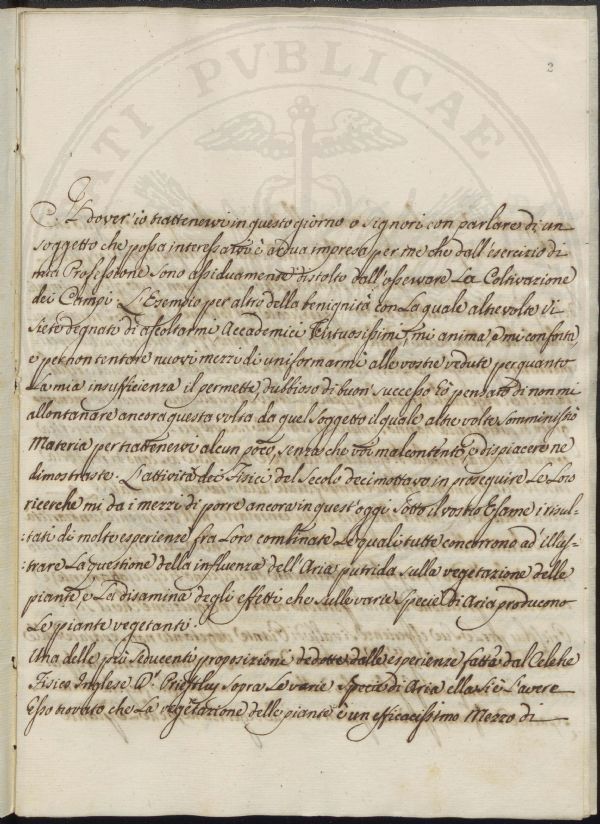 ATI PVBLICAE
2
Il dover' io trattenervi in questo giorno o Signori con parlare di un
soggetto che possa interessarvi è ardua impresa per me che dall'esercizio di
mia Professione sono assiduamente distolto dall'osservare La Coltivazione
dei Campi. L'Esempio per altro della benignità con La quale altre volte Vi
siete degnati di ascoltarmi, Accademici Virtuosissimi, mi anima, e mi conforta,
e per non tentare nuovi mezzi di uniformarmi alle vostre vedute per quanto
La mia insufficienza il permette, dubbioso di buon' successo hò pensato di non mi
allontanare ancora questa volta da quel Soggetto il quale altre volte somministrò
Materia per trattenervi alcun poco, senza che voi malcontento, e dispiacere ne
dimostraste. L'attività dei Fisici del Secolo decimottavo in proseguire Le Loro
ricerche mi da i mezzi di porre ancora in quest'oggi sotto il vostro Esame i risul-
:tati di molte esperienze fra Loro combinate Le quali tutte concorrono ad illus-
:trare La questione della influenza dell'Aria putrida sulla vegetazione delle
piante, e La disamina degli effetti che sulle varie specie di Aria producono
Le piante vegetanti.
Una delle più seducenti proposizioni dedotte dalle esperienze fatte dal Celebre
Fisico Inglese Dr. Priestley sopra Le varie specie di Aria ella si è L'avere
Esso trovato che La vegetazione delle piante è un efficacissimo Mezzo di